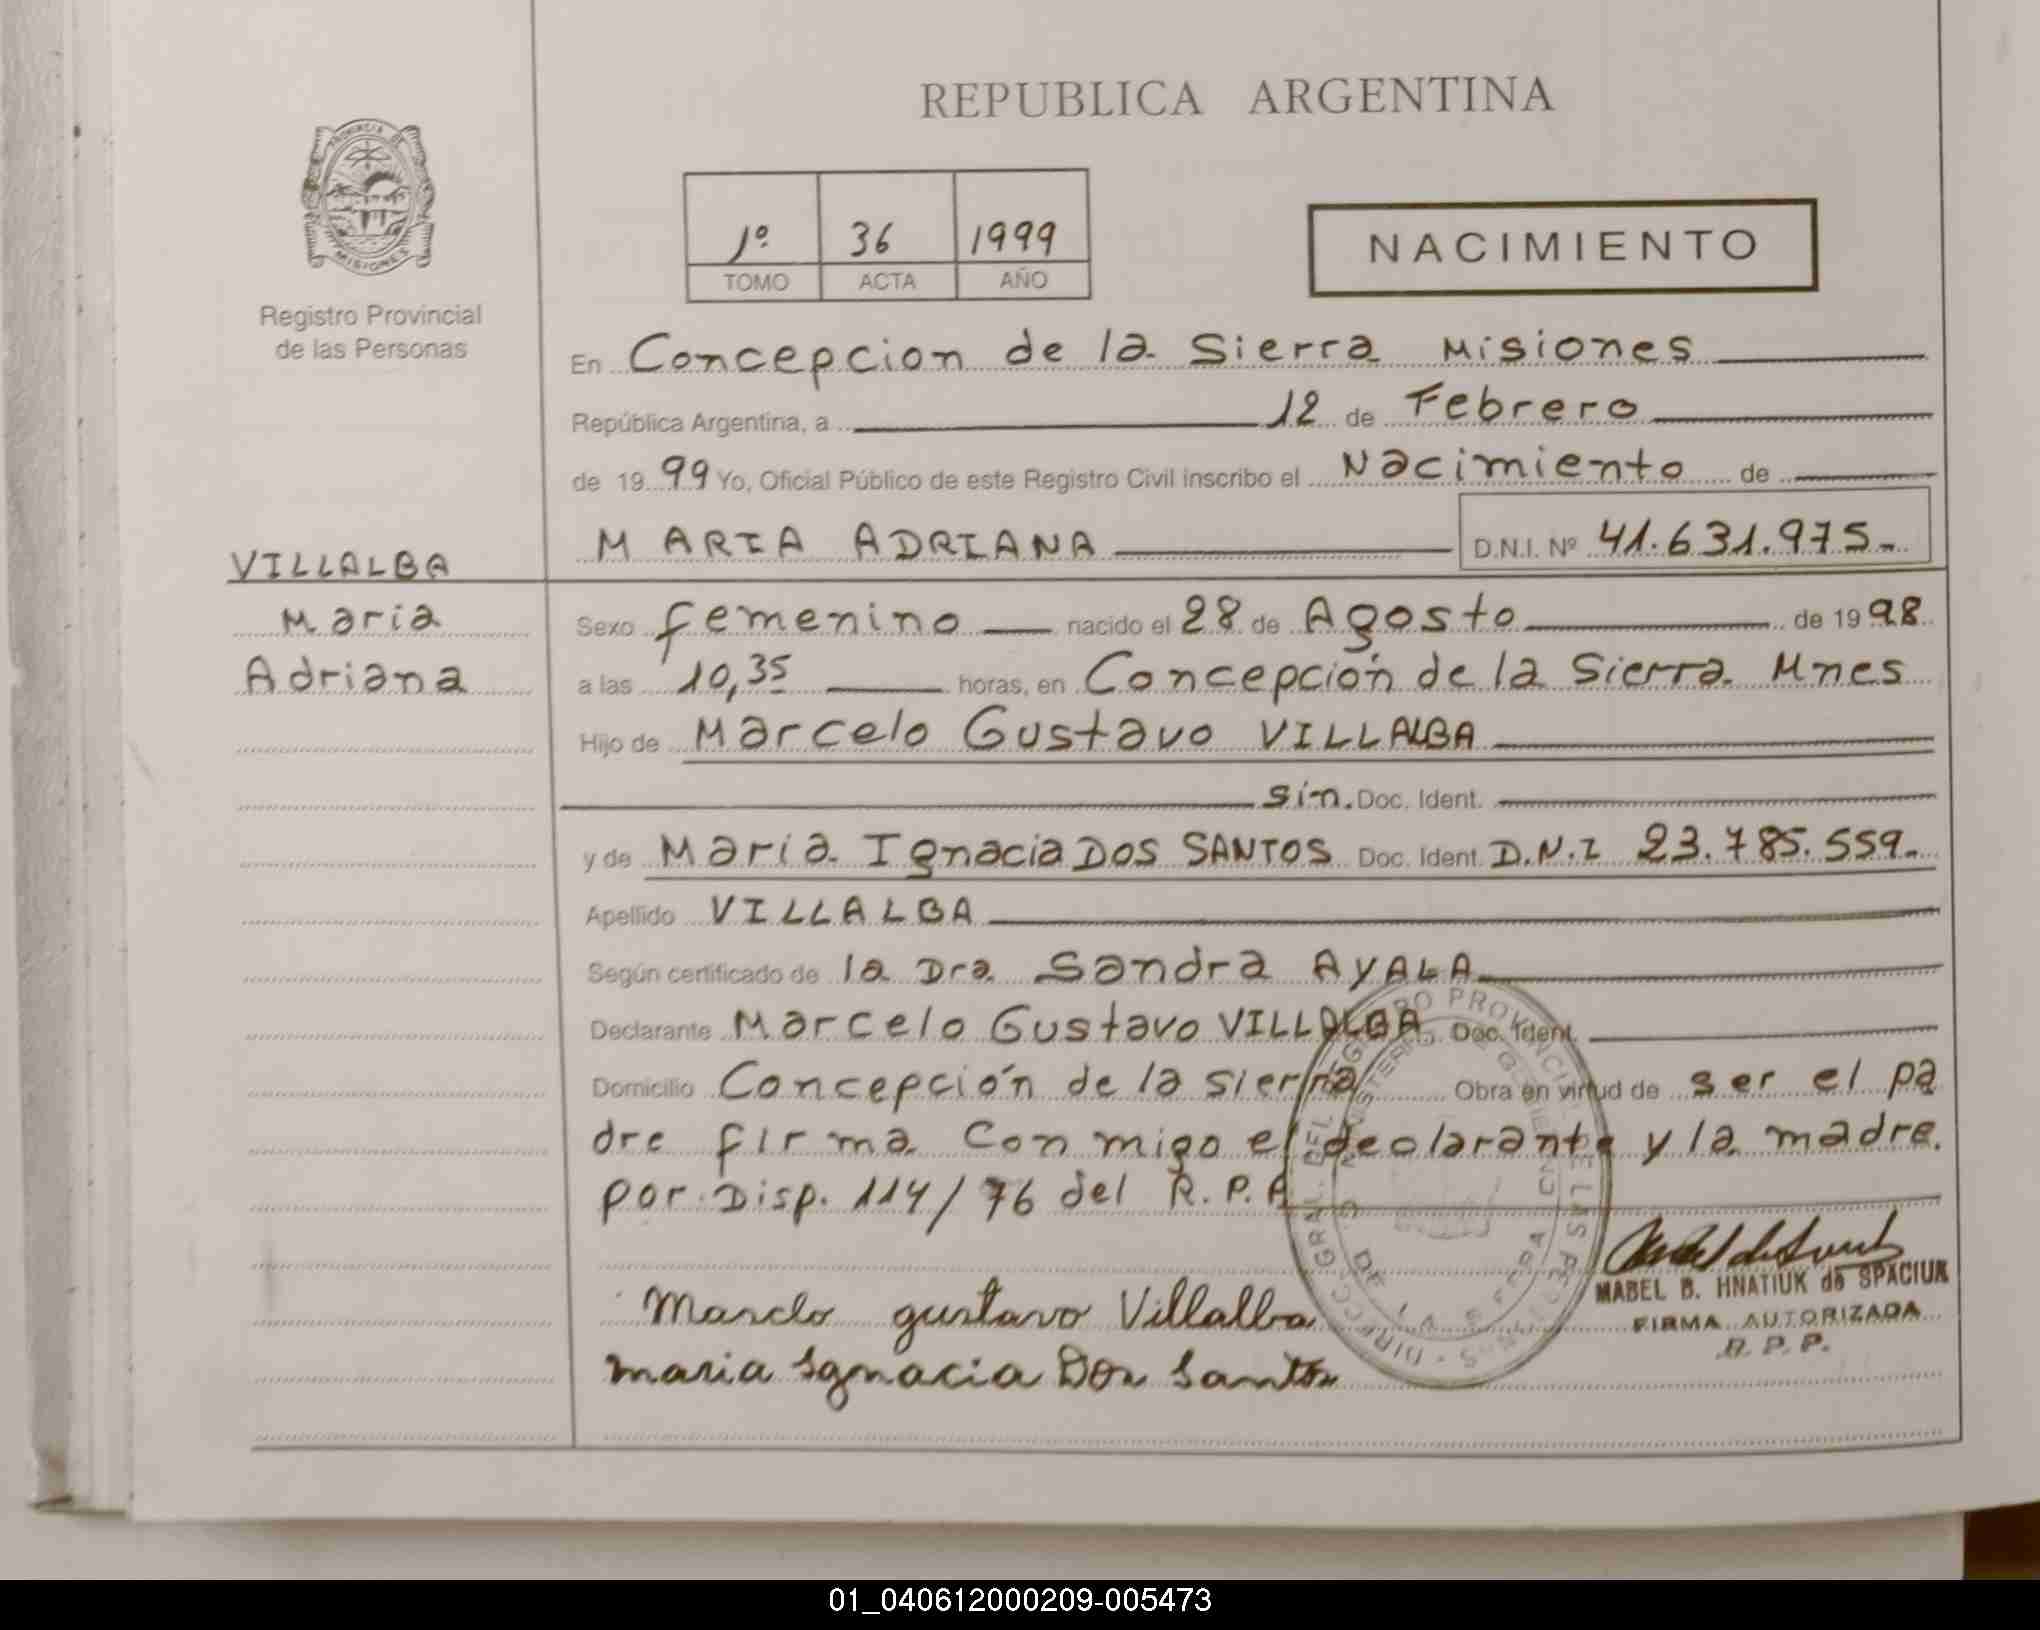 REPUBLICA ARGENTINA
PROVINCIA DE
MISIONES
Registro Provincial
de las Personas
1º 36 1999
TOMO ACTA AÑO
NACIMIENTO
En Concepcion de la Sierra Misiones
República Argentina, a 12 de Febrero
de 19 99 Yo, Oficial Público de este Registro Civil inscribo el Nacimiento de
MARIA ADRIANA D.N.I. Nº 41.631.975.-
VILLALBA
Maria
Adriana
Sexo femenino nacido el 28 de Agosto de 19 98
a las 10,35 horas, en Concepción de la Sierra Mnes
Hijo de Marcelo Gustavo VILLALBA
sin. Doc. Ident.
y de Maria Ignacia DOS SANTOS Doc. Ident. D.N.I 23.785.559.-
Apellido VILLALBA
Según certificado de la Dra Sandra AYALA
Declarante Marcelo Gustavo VILLALBA Doc. Ident.
Domicilio Concepción de la sierra Obra en virtud de ser el pa
dre firma conmigo el declarante y la madre.
por Disp. 114/76 del R.P.A
Marcelo gustavo Villalba
maria Ignacia Dos Santos
MABEL B. HNATIUK de SPACIUK
FIRMA AUTORIZADA
R. P. P.
01_040612000209-005473